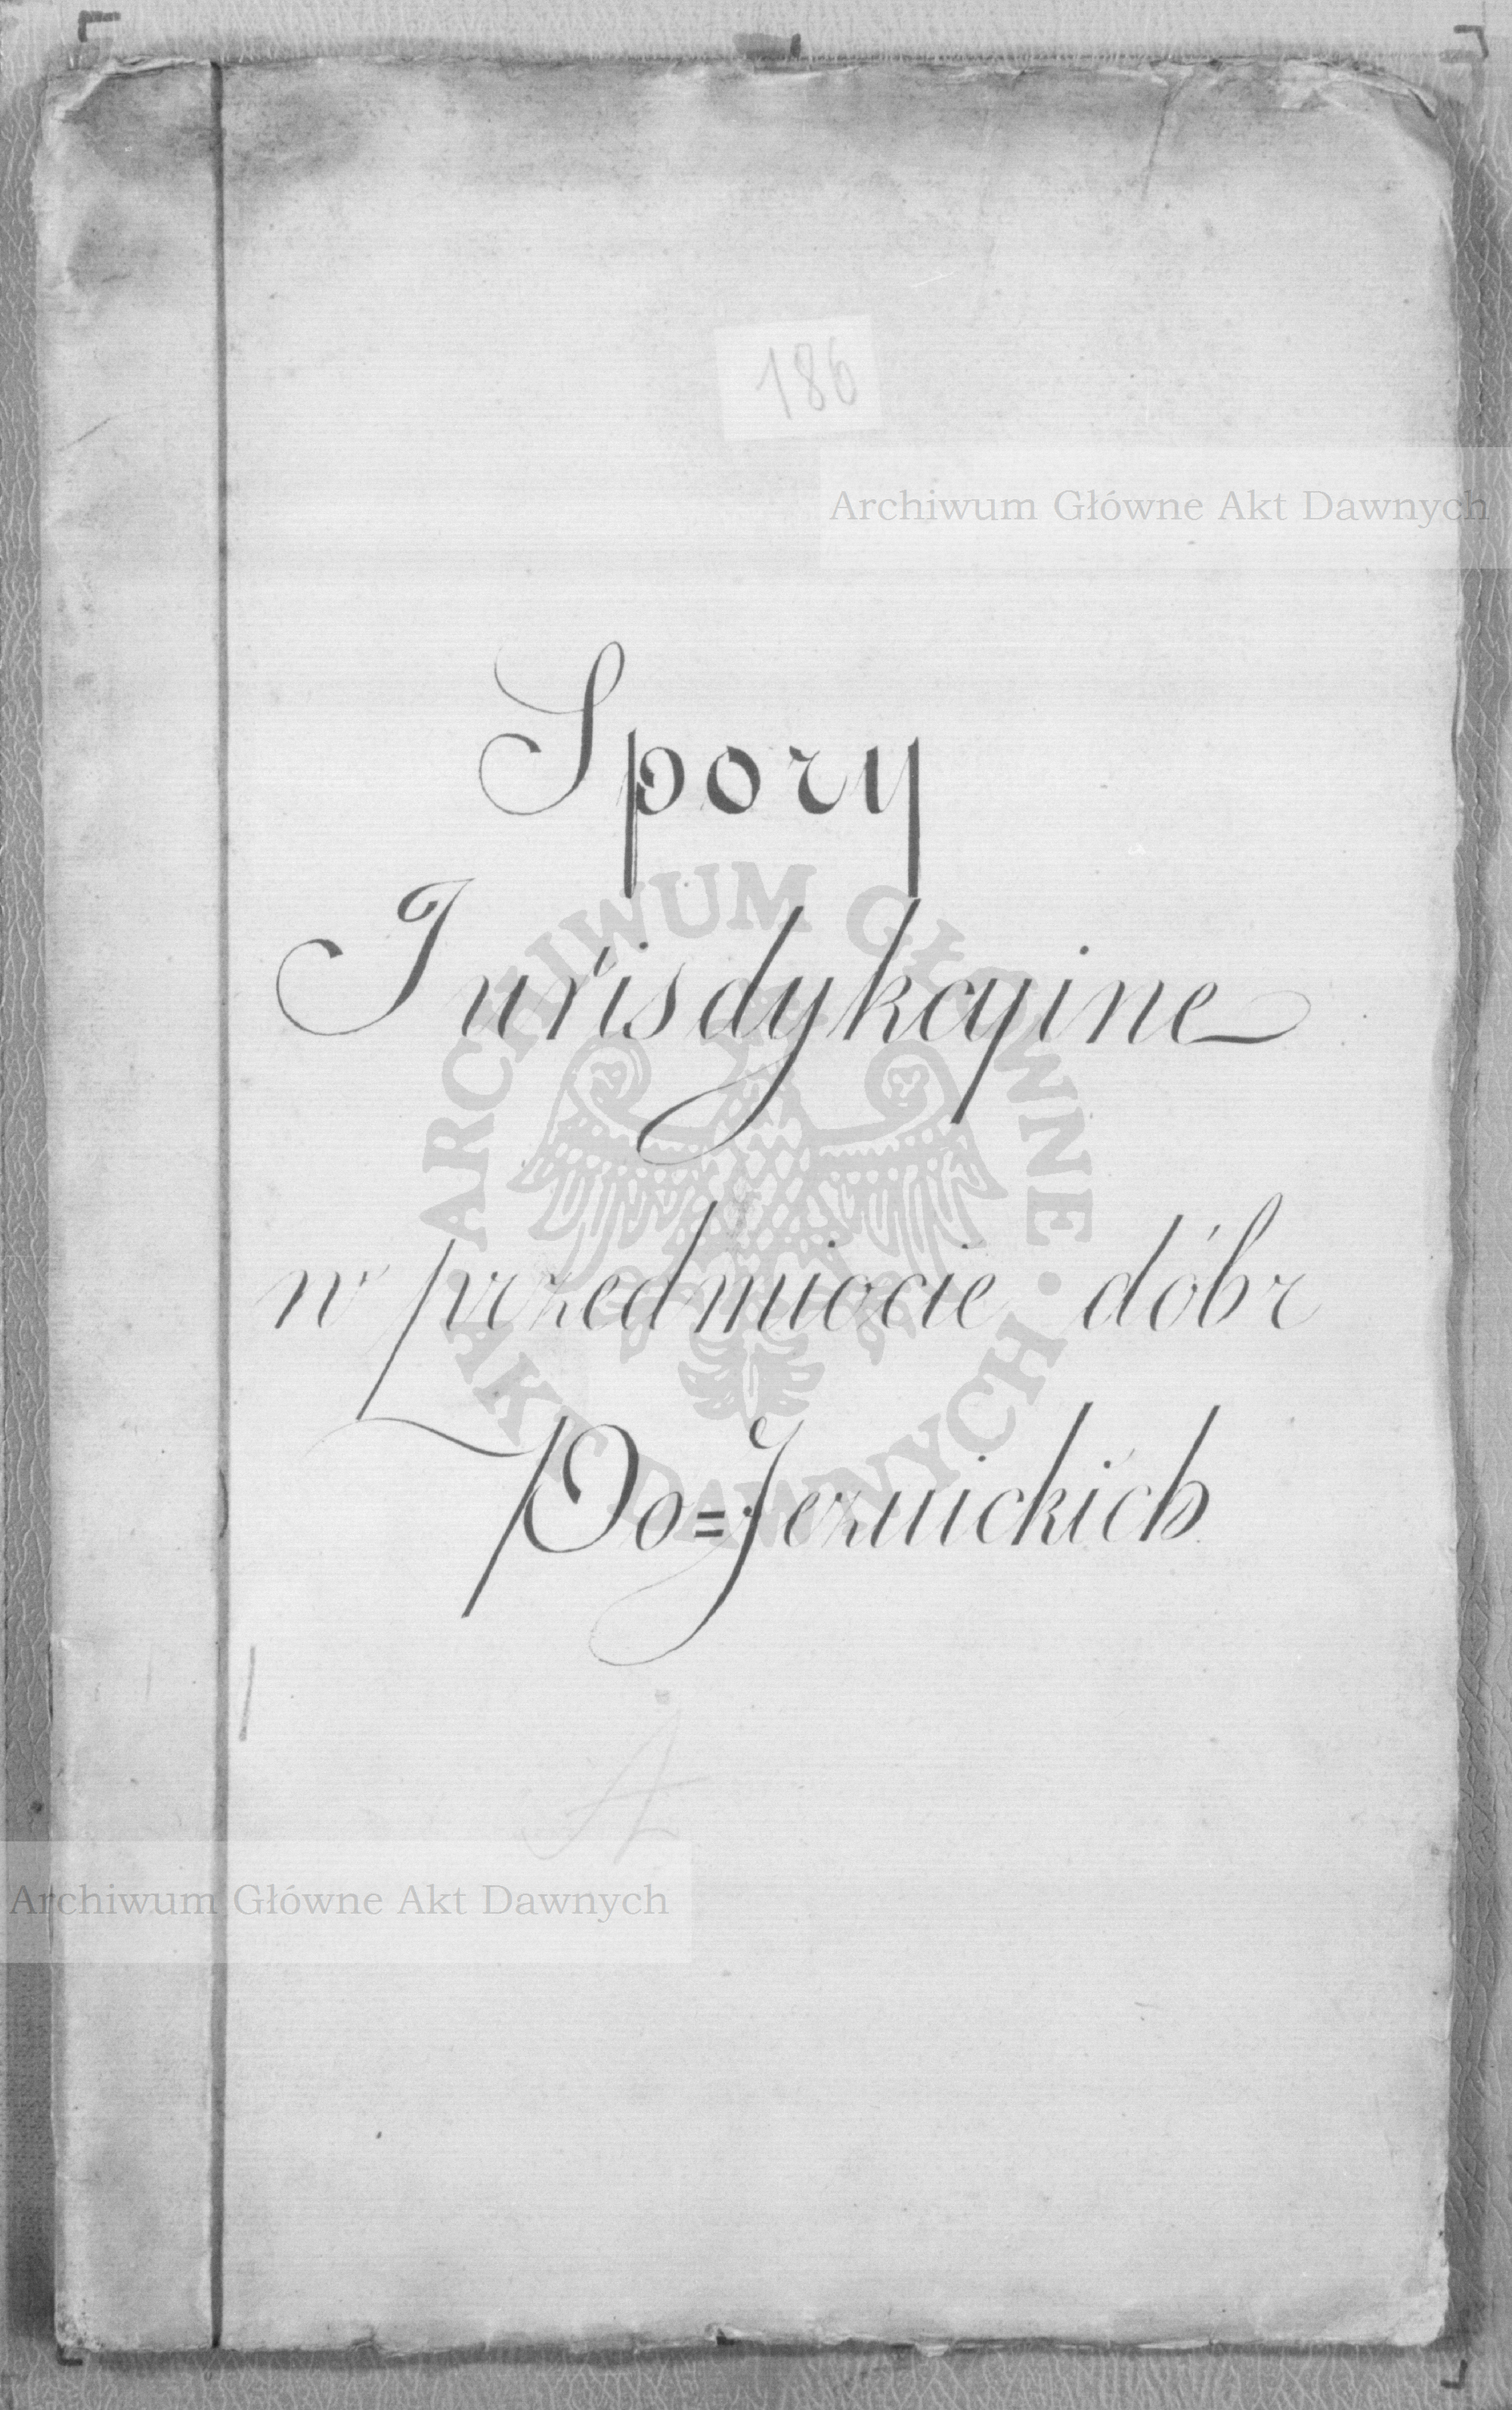 186
Archiwum Główne Akt Dawnych
Spory
Jurisdykcyine
w przedmiocie dóbr
Po=Jezuickich
ARCHIWUM GŁÓWNE · AKT DAWNYCH ·
Archiwum Główne Akt Dawnych